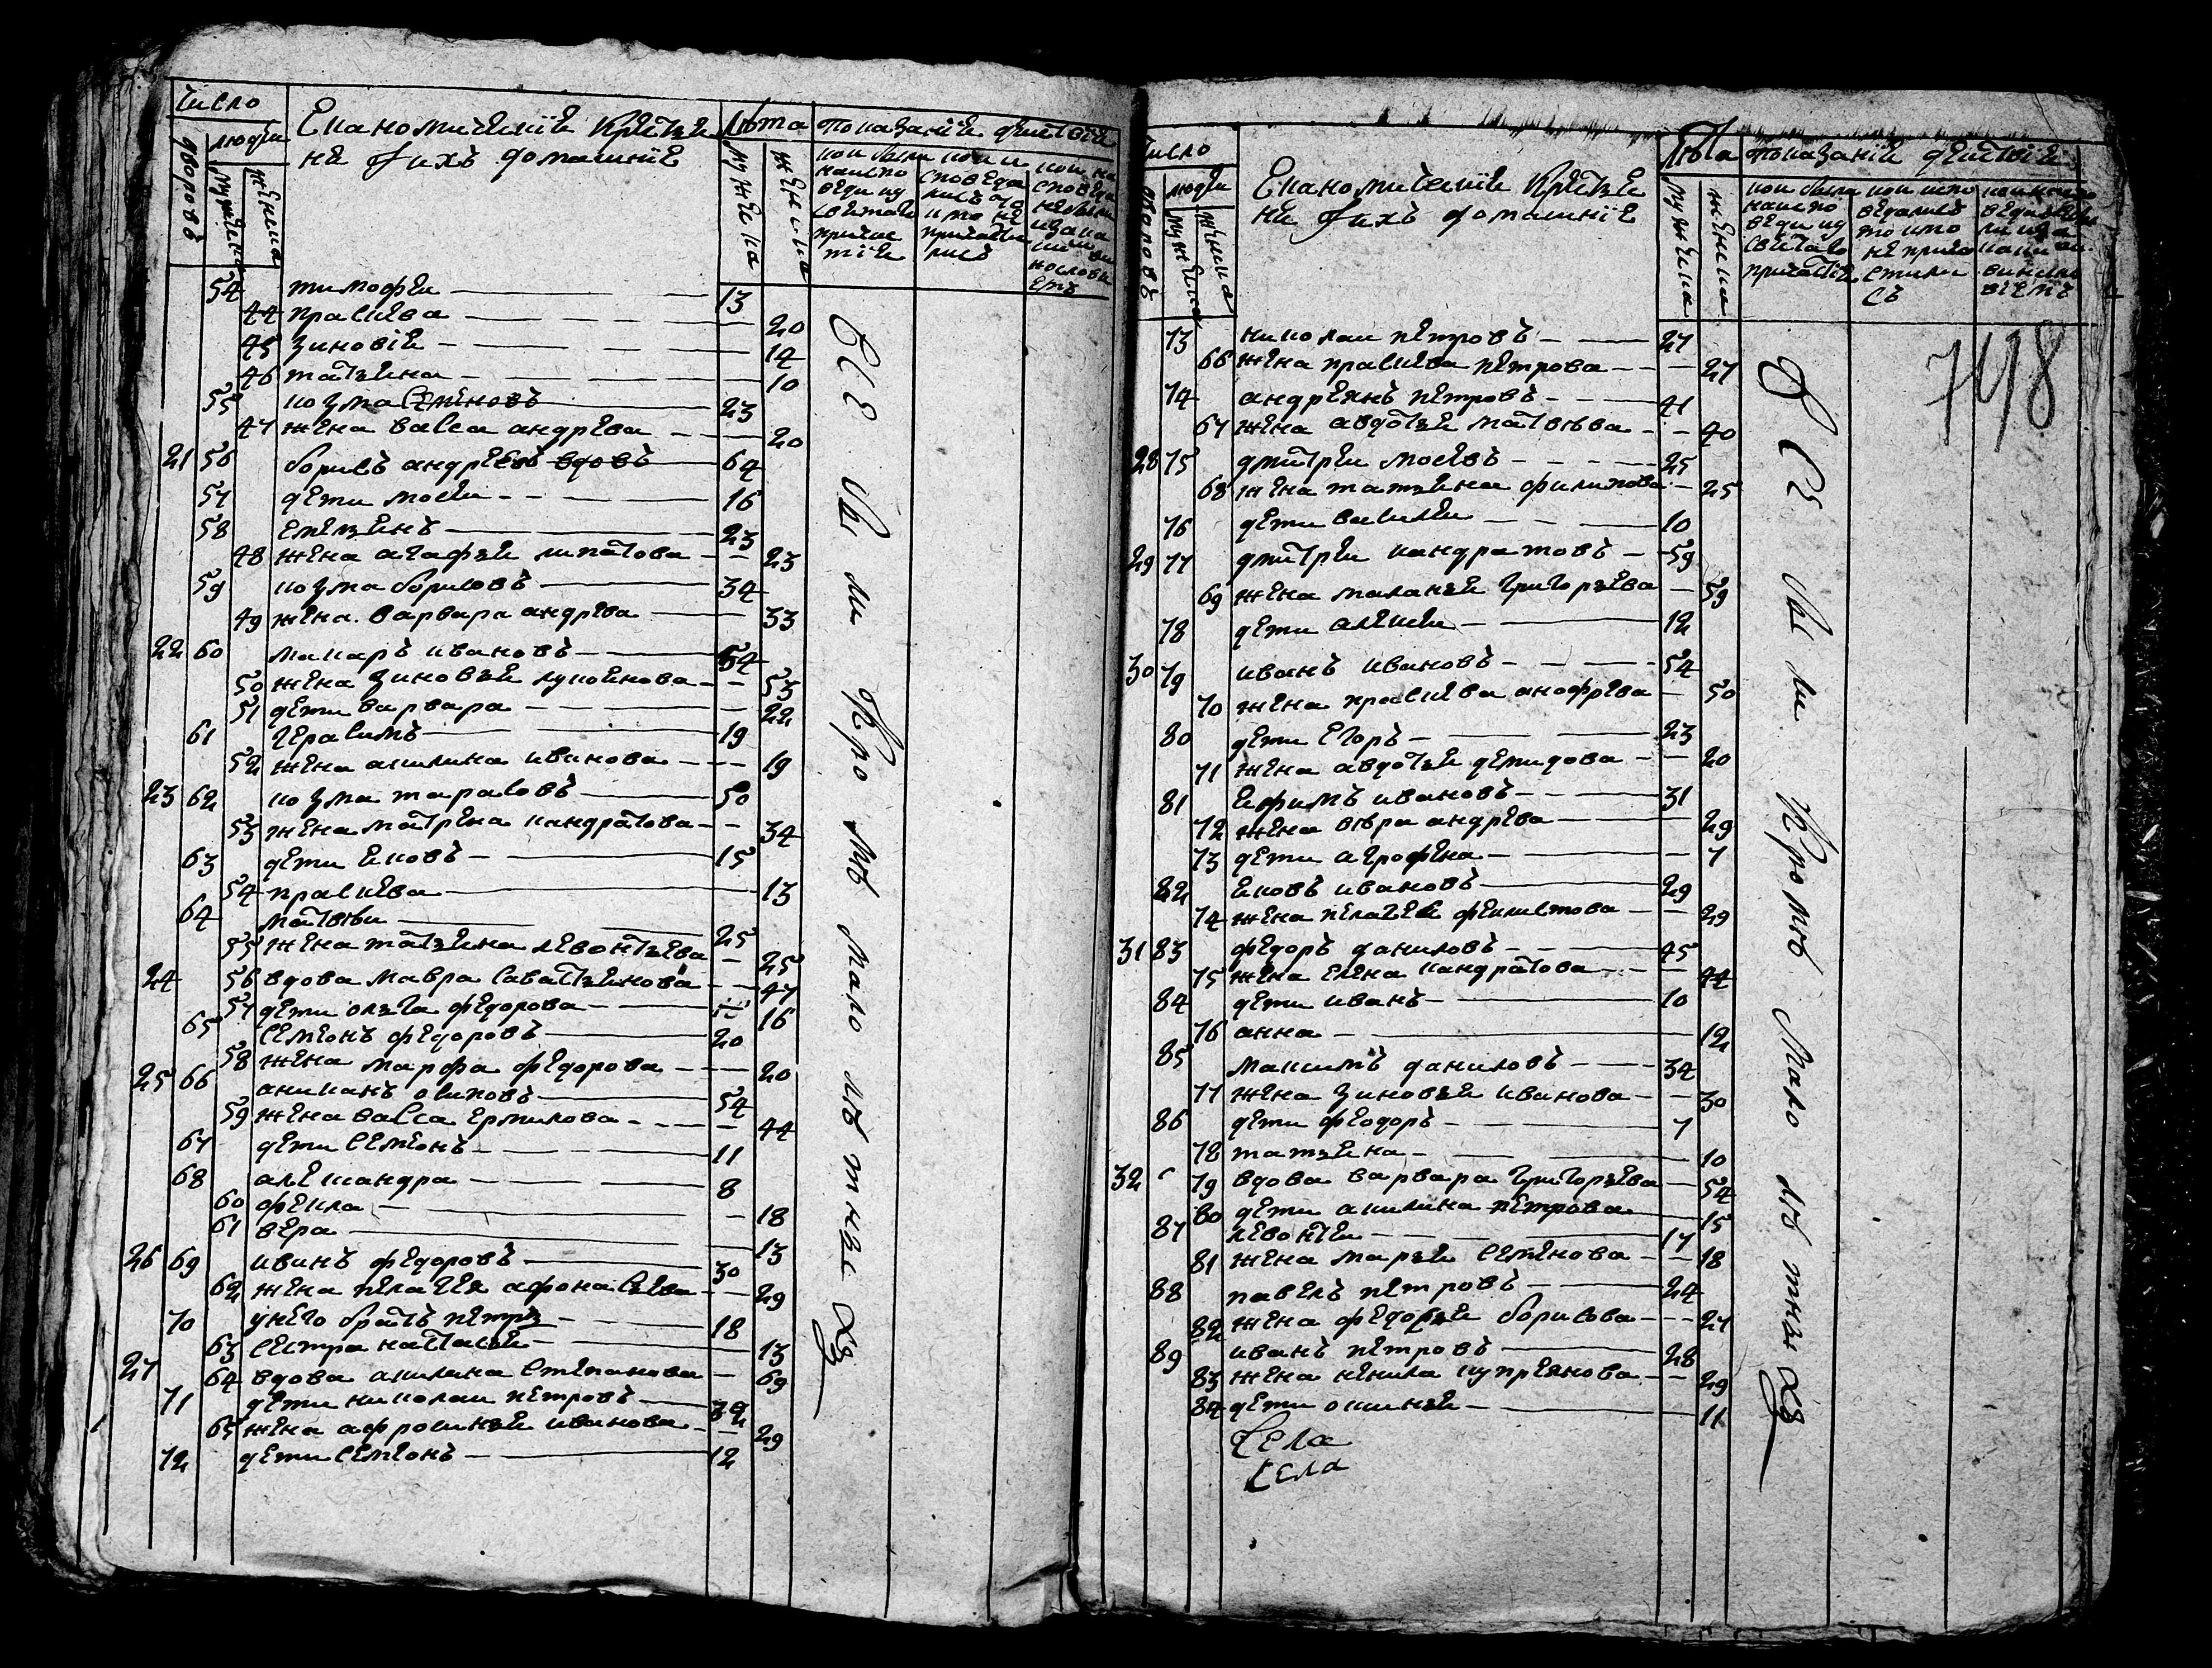 число
людеи
дворовъ
мужеска
женска
Еканомическїе крестья
не ѝ ихъ домашнїе
Лѣта
мужеска
женска
показанїе деиствїи
кои были
на испо
веди и у
святаго
прича
тїя
кои и
споведа
лись до
и то не
причасти
лись
кои на
споведи
небыли
54 тимофеи 13
44 прасковя 20
45 зиновїя 14
46 татьяна 10
55 козма семеновъ 23
47 жена васса андрева 20
21 56 борисъ андреевъ вдовъ 64
57 дети мосеи 16
58 емельянъ 23
48 жена агафья ипатова 23
59 козма борисовъ 34
49 жена варвара андрева 33
22 60 макаръ ивановъ 54
50 жена зиновья лукоянова 53
51 дети варвара 22
61 герасимъ 19
52 жена акилина иванова 19
23 62 козма тарасовъ 50
53 жена матрена кандратова 34
63 дети яковъ 15
54 прасковя 13
64 матвѣи 25
55 жена татьяна левонтьева 25
24 56 вдова мавра саватьянова 47
57 дети ольга федорова 16
65 семіонъ федоровъ 20
58 жена марфа федорова 20
25 66 аниканъ осиповъ 54
59 жена васса ермилова 44
67 дети семіонъ 11
68 александра 8
60 фекла 18
61 вера 13
26 69 иванъ федоровъ 30
62 жена пелагея афонасьева 29
70 унего братъ петръ 18
63 сестра настасья 13
27 64 вдова акилина степанова 69
71 дети николаи петровъ 32
65 жена афросинья иванова 29
72 дети семіонъ 12
Все Ис ли Кро мѣ мало лѣ тных
число
людеи
дворовъ
мужеска
женска
Еканомическїе крестья
не ѝ ихъ домашнїе
Лѣта
мужеска
женска
показанїе деиствїи
кои были
на испо
веди и у
святаго
причастїя
кои испо
ведались
то и то
не прича
стили
съ
798
73 николаи петровъ 27
66 жена прасковя петрова 27
74 андреянъ петровъ 41
67 жена авдотья матвѣва 40
28 75 дмитреи мосевъ 25
68 жена татьяна филипова 25
76 дети василеи 10
29 77 дмитреи кандратовъ 59
69 жена маланья григорьева 59
78 дети алексеи 12
30 79 иванъ ивановъ 54
70 жена прасковя анофрева 50
80 дети егоръ 23
71 жена авдотья демидова 20
81 ефимъ ивановъ 31
72 жена вѣра андрева 29
73 дети агрофена 7
82 яковъ ивановъ 29
74 жена пелагея феклистова 29
31 83 федоръ даниловъ 45
75 жена елена кандратова 44
84 дети иванъ 10
76 анна 12
85 максимъ даниловъ 34
77 жена зиновья иванова 30
86 дети феодоръ 7
78 татьяна 10
32 79 вдова варвара григорьева 54
80 дети акилина петрова 15
87 левонтеи 17
81 жена марья семенова 18
88 павелъ петровъ 24
82 жена федорья борисова 27
89 иванъ петровъ 28
83 жена ненила купреянова 29
84 дети оксинья 11
Села
Села
Все Ис ли Кромѣ Мало лѣ тных